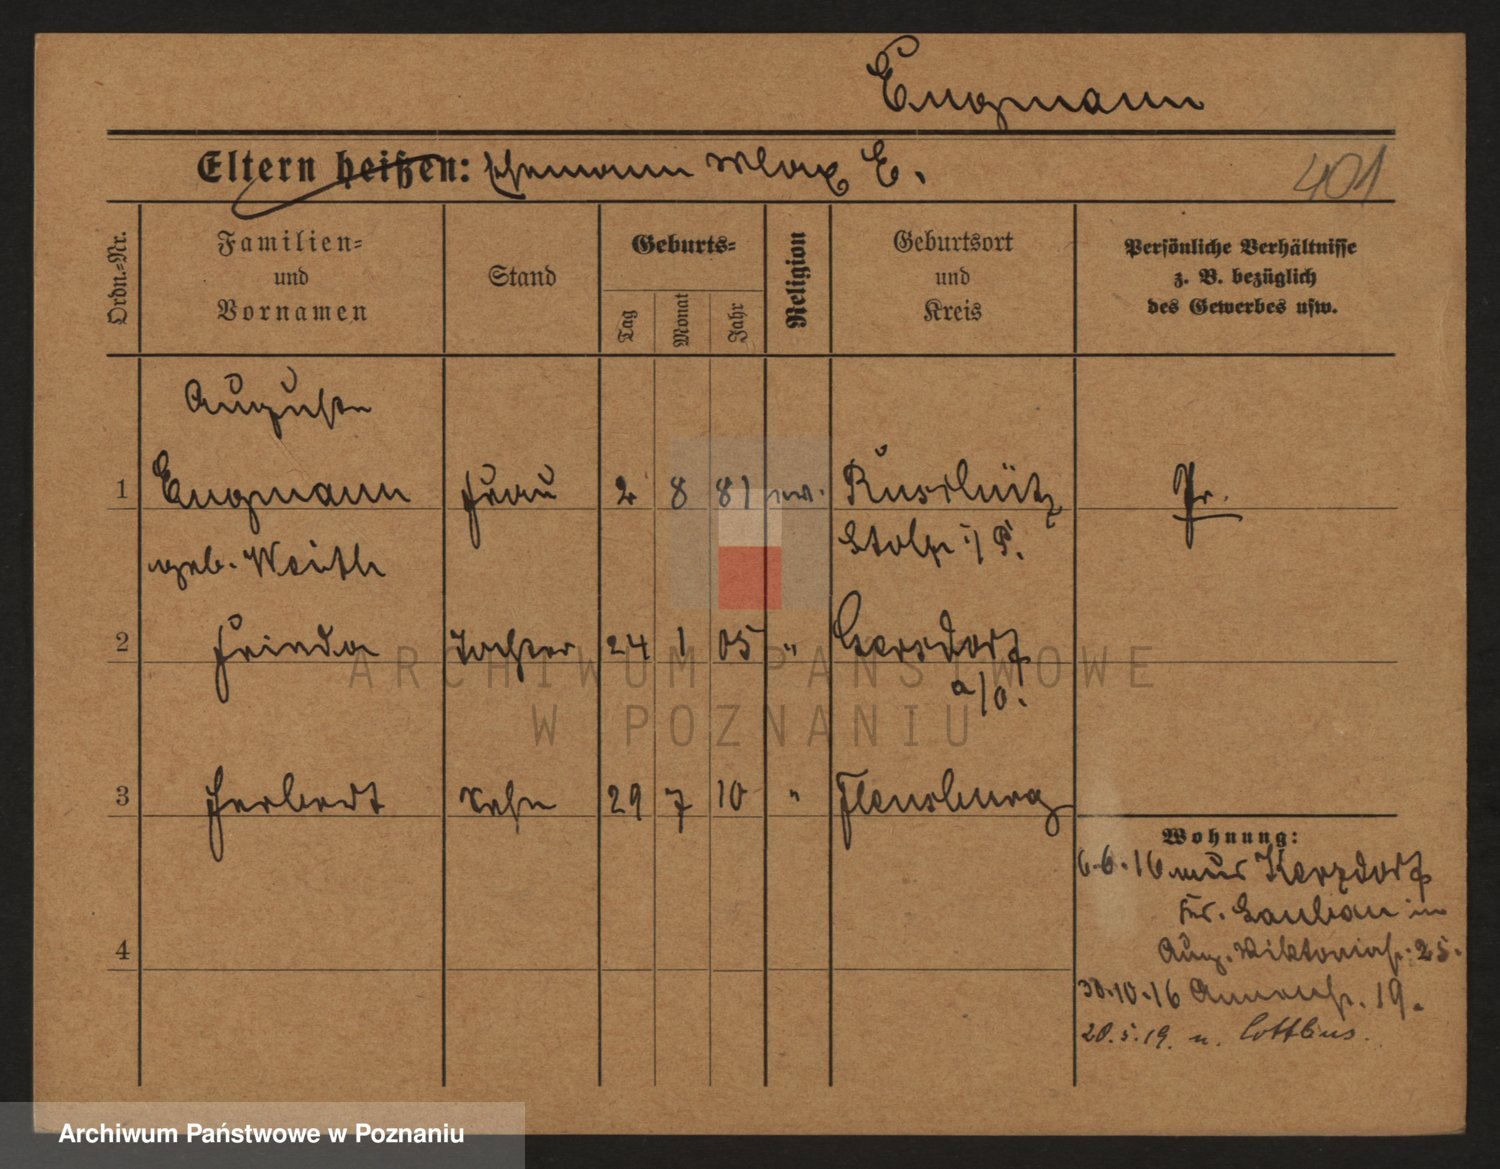 Engmann
Eltern heißen: Ehemann Max E.
401
Ordn.=Nr.
Familien=
und
Vornamen
Stand
Geburts=
Tag
Monat
Jahr
Religion
Geburtsort
und
Kreis
Persönliche Verhältnisse
z. B. bezüglich
des Gewerbes usw.
Auguste
1 Engmann Frau 2 8 81 ev. Pr.
geb. Stolp i/P.
2 Frieda Tochter 24 1 05 " Gersdorf
a/O.
3 Herbert Sohn 29 7 10 " Flensburg
4
Wohnung:
6.6.16 aus Kerzdorf
Kr. Lauban in
Aug. Viktoriastr. 25.
30.10.16 19.
20.5.19. n. Cottbus.
ARCHIWUM PAŃSTWOWE
W POZNANIU
Archiwum Państwowe w Poznaniu